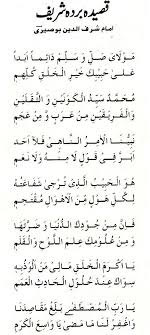 قصیدہ بردہ شریف
امام شرف الدین بوصیری
مَوْلَايَ صَلِّ وَ سَلِّمْ دَائِمًا أَبَدًا
عَلٰى حَبِيْبِكَ خَيْرِ الْخَلْقِ كُلِّهِمِ
مُحَمَّدٌ سَيِّدُ الْكَوْنَيْنِ وَالثَّقَلَيْنِ
وَالْفَرِيْقَيْنِ مِنْ عَرَبٍ وَّ مِنْ عَجَمِ
نَبِيُّنَا الْاٰمِرُ النَّاهِيْ فَلَا اَحَدَ
اَبَرَّ فِيْ قَوْلِ لَا مِنْهُ وَلَا نَعَمِ
هُوَ الْحَبِيْبُ الَّذِيْ تُرْجٰى شَفَاعَتُهُ
لِكُلِّ هَوْلٍ مِّنَ الْاَهْوَالِ مُقْتَحِمِ
فَاِنَّ مِنْ جُوْدِكَ الدُّنْيَا وَ ضَرَّتَهَا
وَ مِنْ عُلُوْمِكَ عِلْمُ اللَّوْحِ وَ الْقَلَمِ
يَا اَكْرَمَ الْخَلْقِ مَا لِيْ مَنْ اَلُوْذُ بِهٖ
سِوَاكَ عِنْدَ حُلُوْلِ الْحَادِثِ الْعَمِمِ
يَا رَبِّ الْمُصْطَفٰى بَلِّغْ مَقَاصِدَنَا
وَاغْفِرْ لَنَا مَا مَضٰى يَا وَاسِعَ الْكَرَمِ